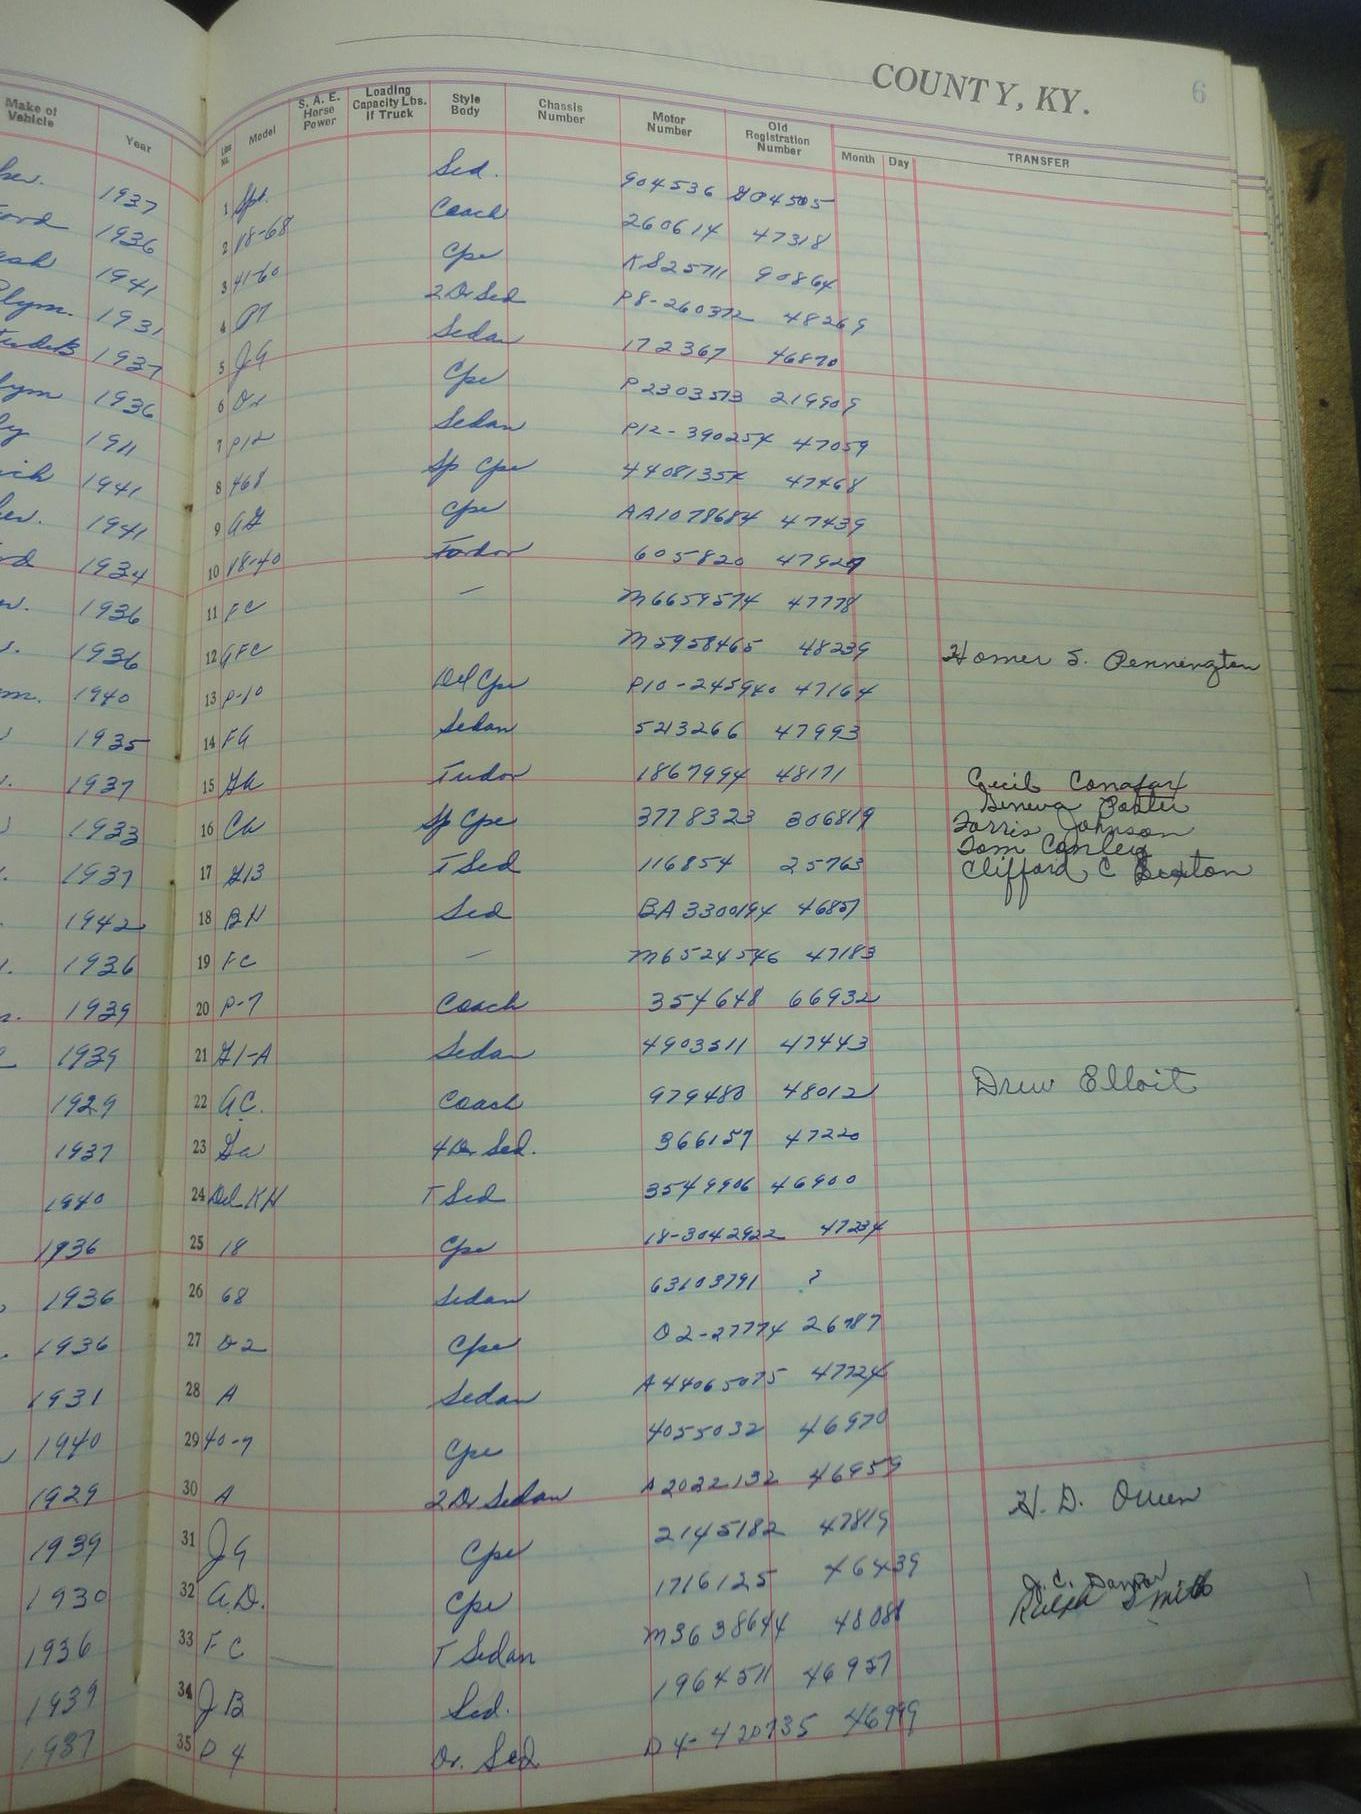 COUNTY, KY.
6
Make of Vehicle Year Line No. Model S. A. E. Horse Power Loading Capacity Lbs. If Truck Style Body Chassis Number Motor Number Old Registration Number Month Day TRANSFER
1937 1 Spt. Sed. 904536
1936 2 V8-68 Coach 260614 47318
1941 3 41-60 Cpe KS25711 90864
Plym. 1931 4 2 Dr Sed P8-260372 48269
1937 5 JG Sedan 172367 46870
1936 6 Cpe P2303573 219909
1911 7 P12 Sedan P12-390254 47059
1941 8 468 Sp Cpe 44081354 47468
1941 9 AG Cpe AA1078684 47439
1934 10 V8-40 Fordor 605820 47929
1936 11 FC — M6659574 47778
1936 12 GFC M5958465 48239 Homer S. Pennington
1940 13 P-10 Del Cpe P10-245940 47164
1935 14 FG Sedan 5213266 47993
1937 15 Ga Tudor 1867994 48171 Cecil
1933 16 Ca Sp Cpe 3778323 306819 Geneva Porter
Torris Johnson
Tom Conley
1937 17 G13 T Sed 116854 25763 Clifford C Sexton
1942 18 BH Sed BA3300194 46857
1936 19 FC — M6524546 47183
1939 20 P-7 Coach 354648 66932
1939 21 Sedan 4903511 47443
1929 22 A.C. Coach 979480 48012 Drew Elloit
1937 23 Ga 4 Dr Sed. 366157 47220
1940 24 Del KH T Sed 3549906 46900
1936 25 18 Cpe 18-3042922 47234
1936 26 68 Sedan 63103791 ?
1936 27 D2 Cpe D2-27774 26787
1931 28 A Sedan A44065075 47724
1940 29 40-7 Cpe 4055032 46970
1929 30 A 2 Dr Sedan A2022132 46959 H. D. Owen
1939 31 JG Cpe 2145182 47819
1930 32 A.D. Cpe 1716125 46439 J. C.
1936 33 FC T Sedan M3638644 48088 Ralph Smith
1939 34 JB Sed. 1964511 46957
1937 35 D4 Dr. Sed D4-420735 46999